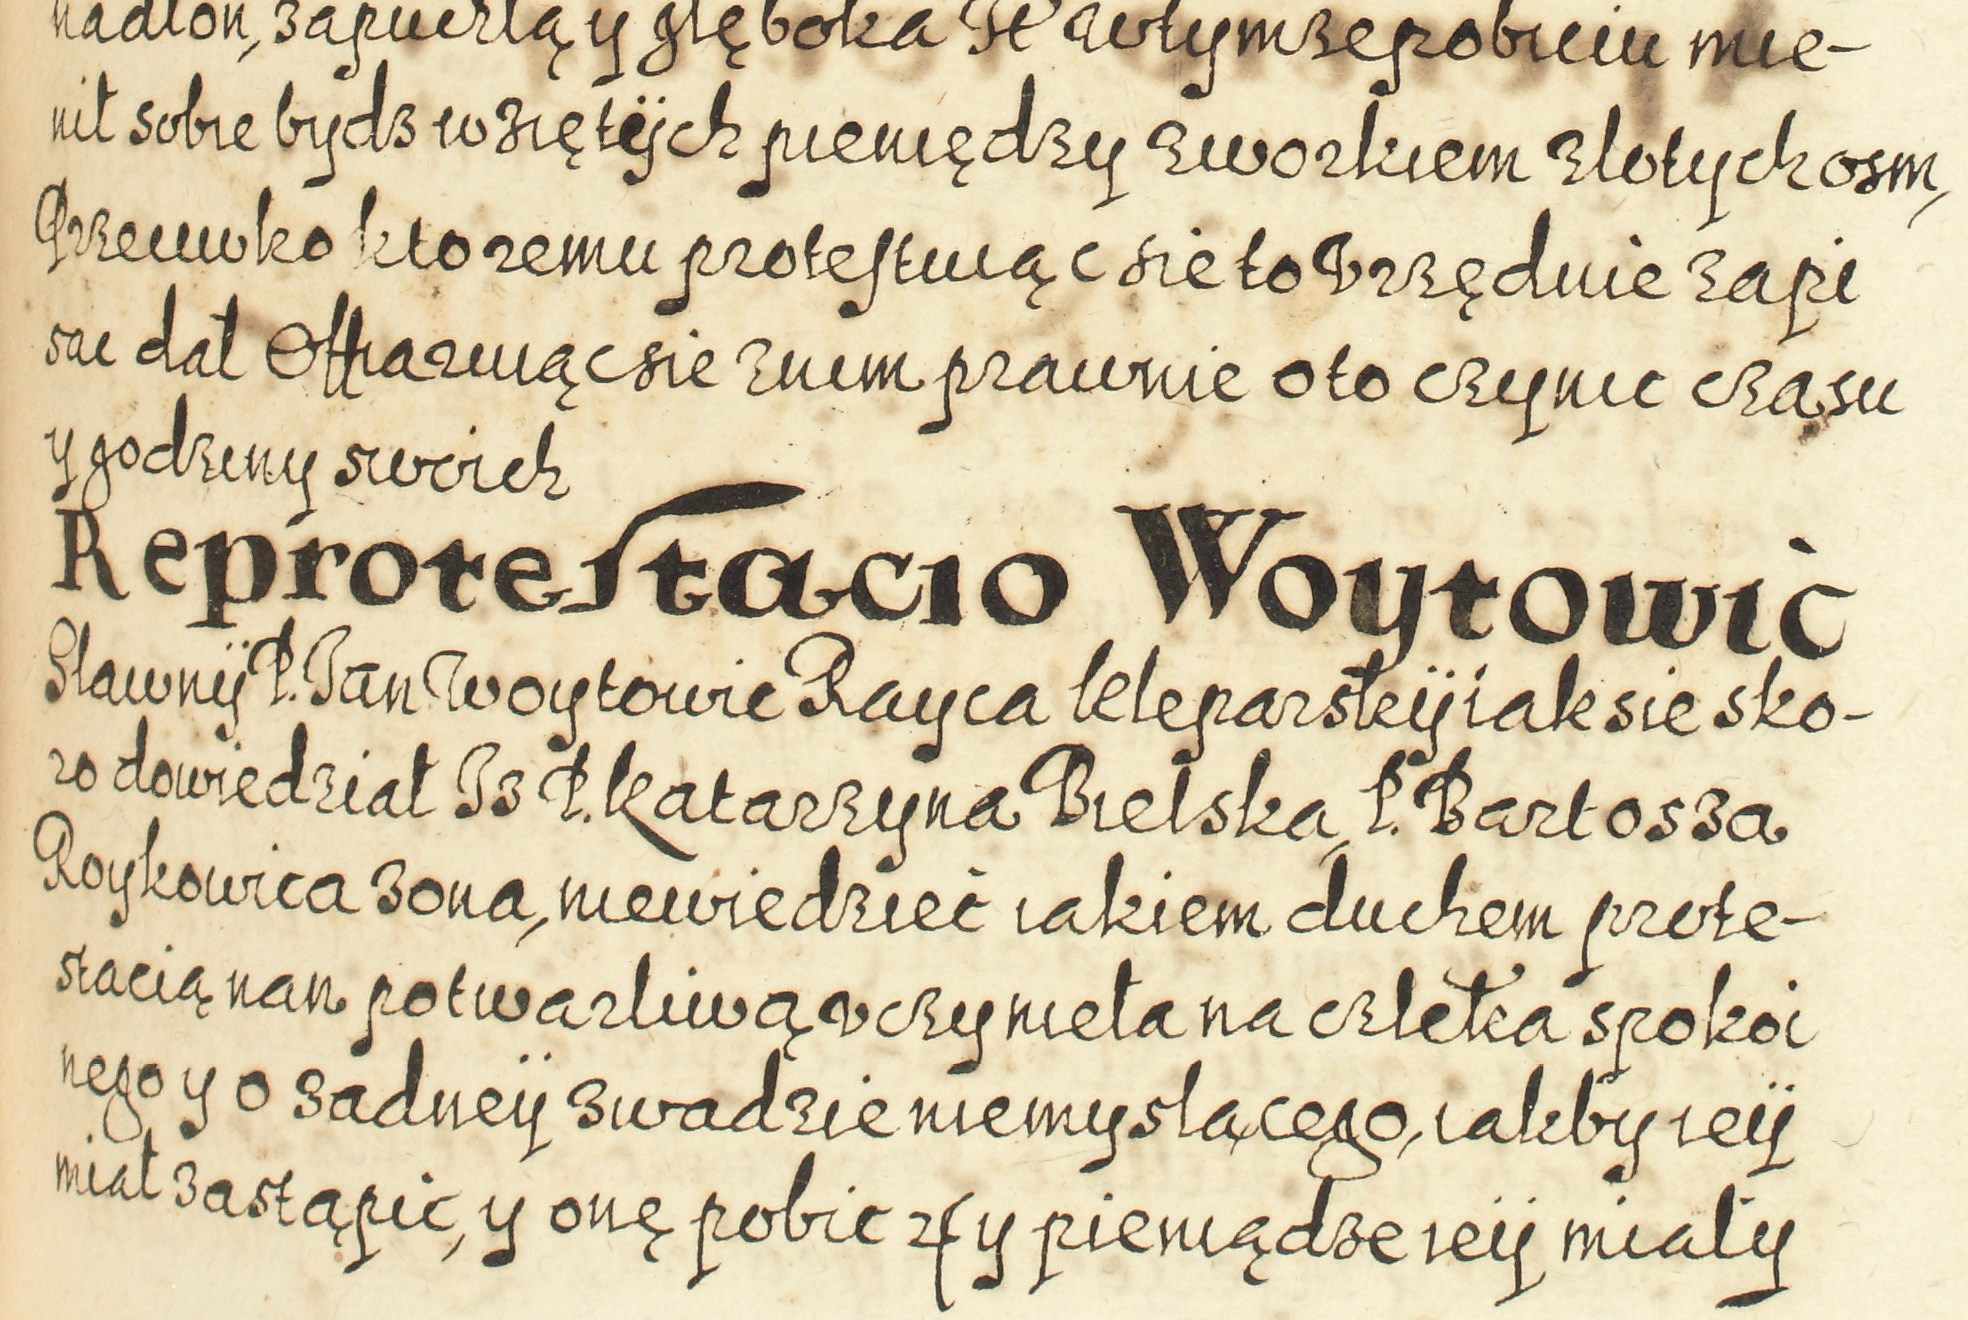 nadłon, zapuchłą y głęboka It wtymze pobiciu mie-
nił sobie bydz wziętÿch pieniędzy zworkiem złotych osm,
Przeciwko ktoremu protestuiąc sie to Vrzędnie zapi
sac dał Offiaruiąc sie znim prawnie oto czynic czasu
y godziny swoich
Reprotestacio Woytowic
Sławnÿ P. Jan Woytowic Rayca kleparskÿ iak sie sko-
ro dowiedział Iz P. Katarzyna Bielska, P. Bartosza
Roykowica zona, niewiedziec iakiem duchem prote-
stacią nan potwarliwą vczynieła na człeka spokoi
nego y o zadneÿ zwadzie niemyslącego, iakby ieÿ
miał zastąpic, y onę pobic y pieniądze ieÿ miały